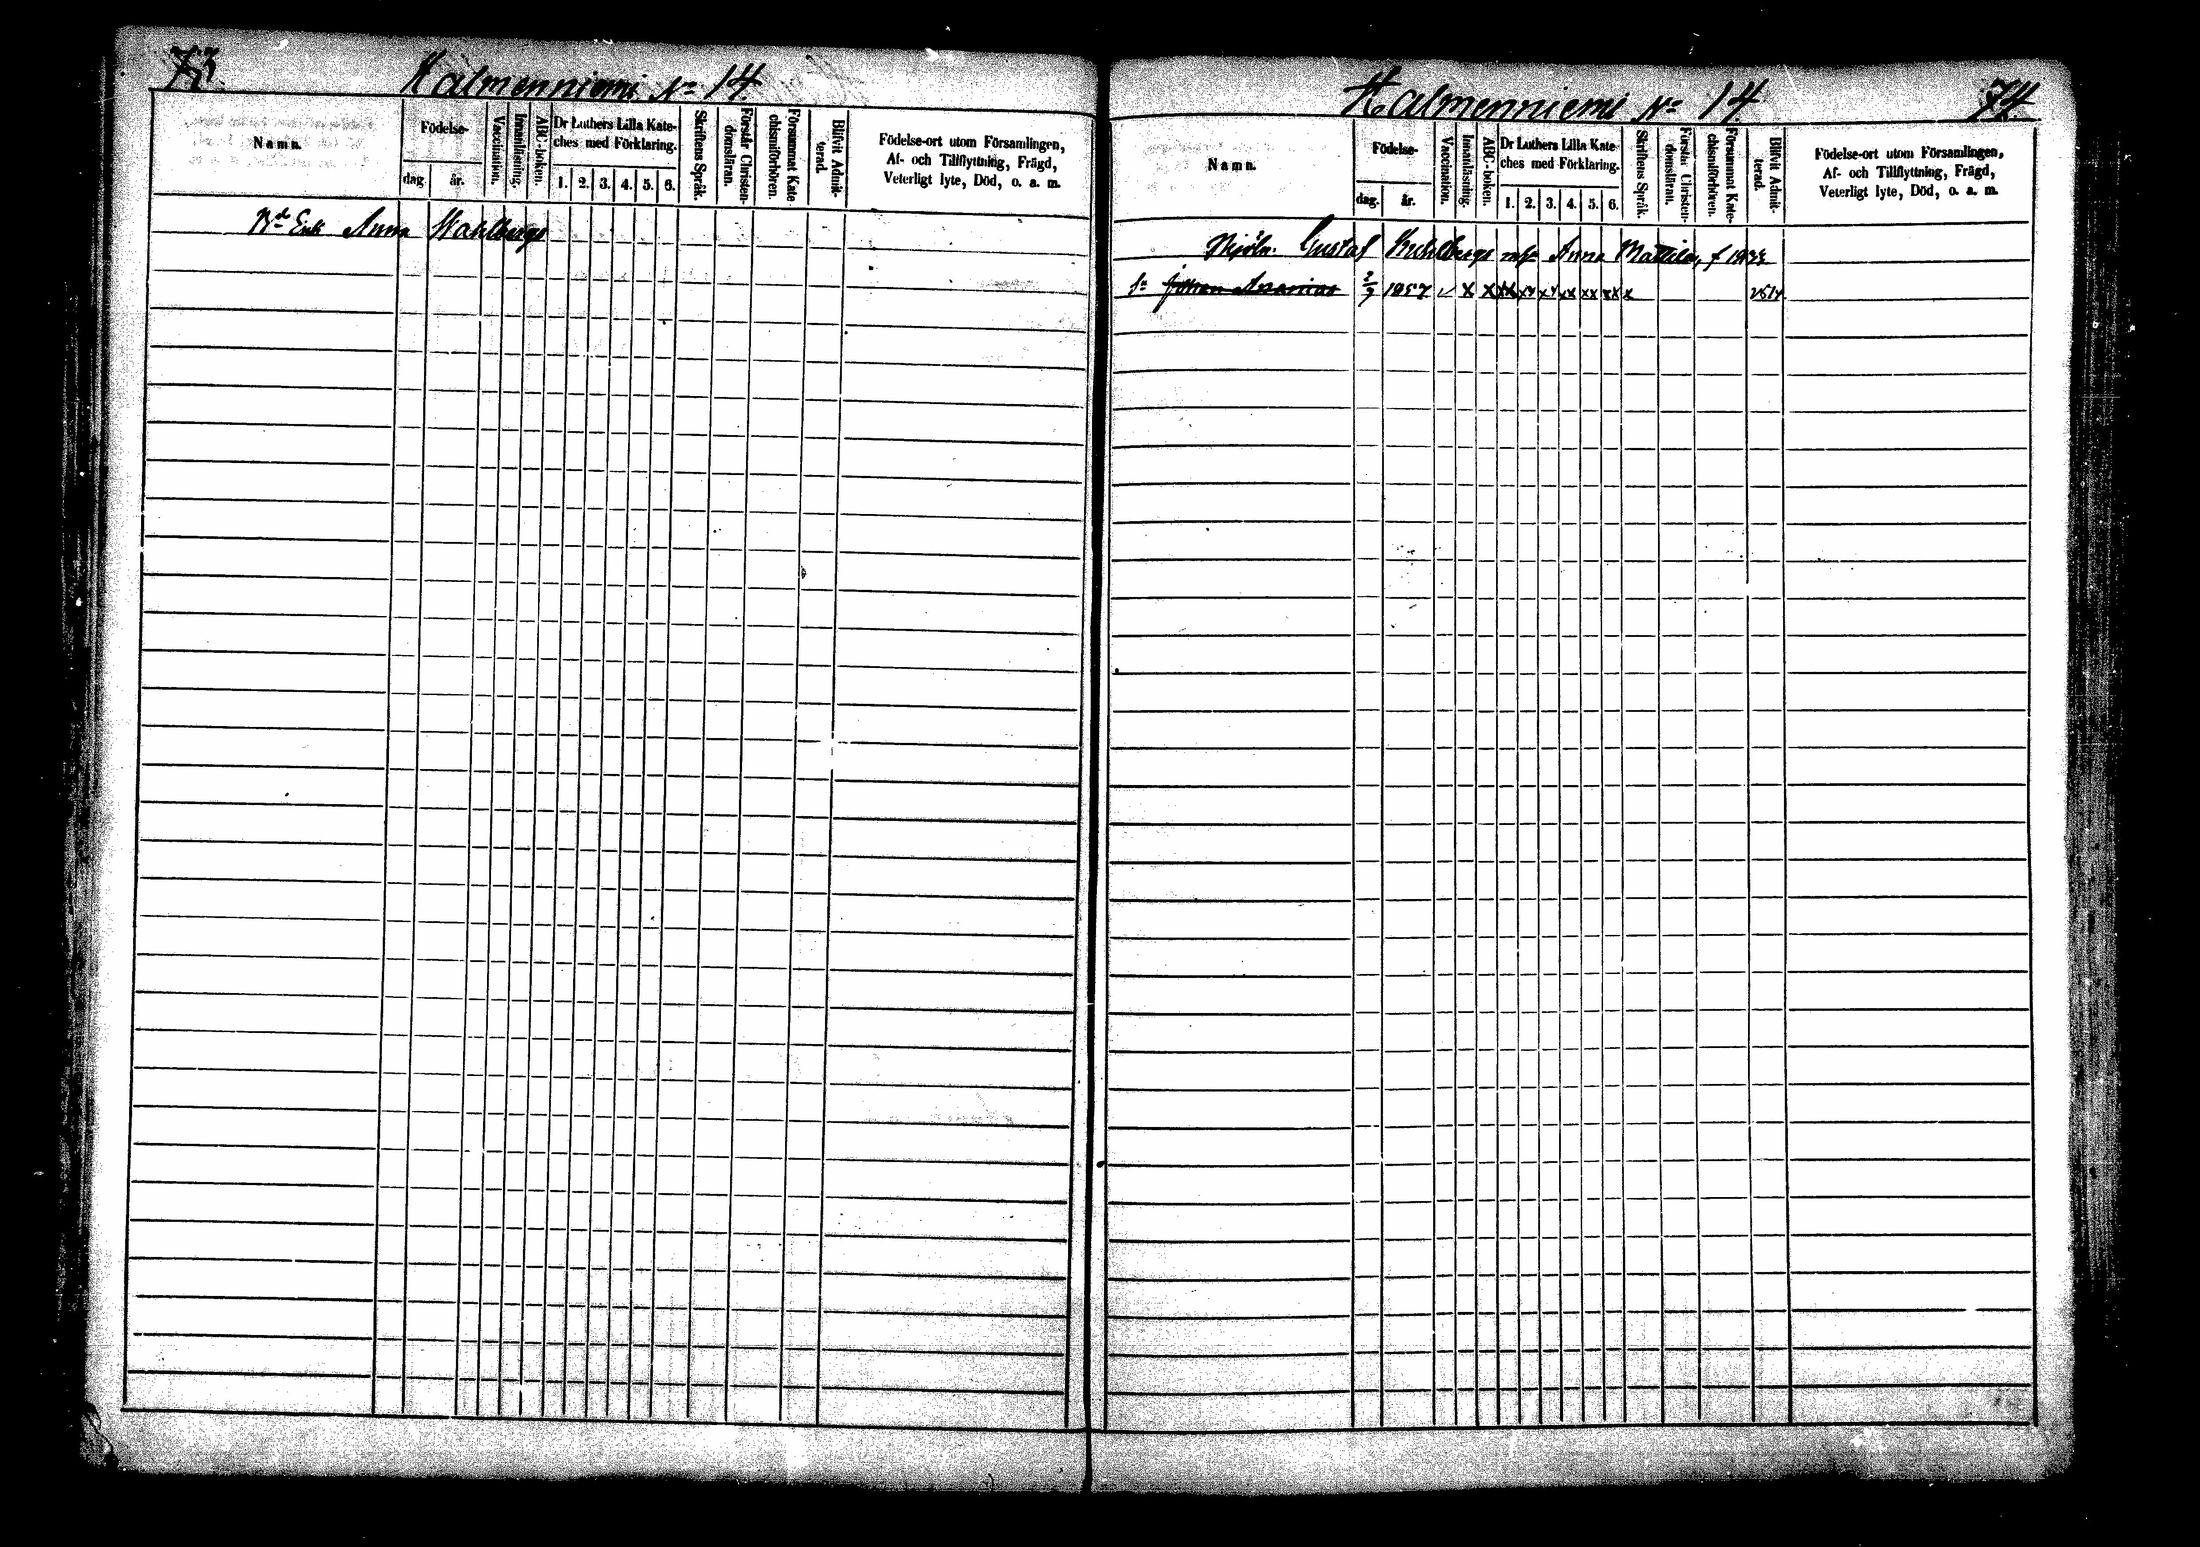 73
Kalmenniemi No 14.
Namn.
Födelse-
dag
år.
Vaccination.
Innanläsning.
ABC-boken.
Dr Luthers Lilla Kate-
ches med Förklaring.
1. 2. 3. 4. 5. 6.
Skriftens Språk.
Förstår Christen-
domsläran.
Försummat Kate
chismiförhören.
Blifvit Admit-
terad.
Födelse-ort utom Församlingen,
Af- och Tillflyttning, Frägd,
Veterligt lyte, Död, o. a. m.
Enk Anna Wahlbergs
Kalmenniemi No 14.
74.
Namn.
Födelse-
dag.
år.
Vaccination.
Innanläsning.
ABC-boken.
Dr Luthers Lilla Kate-
ches med Förklaring.
1. 2. 3. 4. 5. 6.
Skriftens Språk.
Förstår Christen-
domsläran.
Försummat Kate-
chismiförhören.
Blifvit Admit-
terad.
Födelse-ort utom Församlingen,
Af- och Tillflyttning, Frägd,
Veterligt lyte, Död, o. a. m.
Gustaf Anna
Johan Ananias 2/9 1857 ✓ x x xx xx xx xx xx xx x